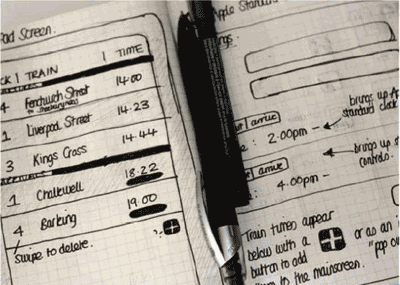 Pad Screen.
CK | TRAIN | TIME
4 Fenchurch Street 14.00
1 Liverpool Street 14.23
3 Kings Cross 14.44
1 Chalkwell 18.22
4 Barking 19.00
Swipe to delete.
Apple Standard
ngs:
brings up A
standard clock
2.00pm
brings up s
controls.
4.00pm
Train times appear
below with a or as an i
button to add "pop o
to the mainscreen.